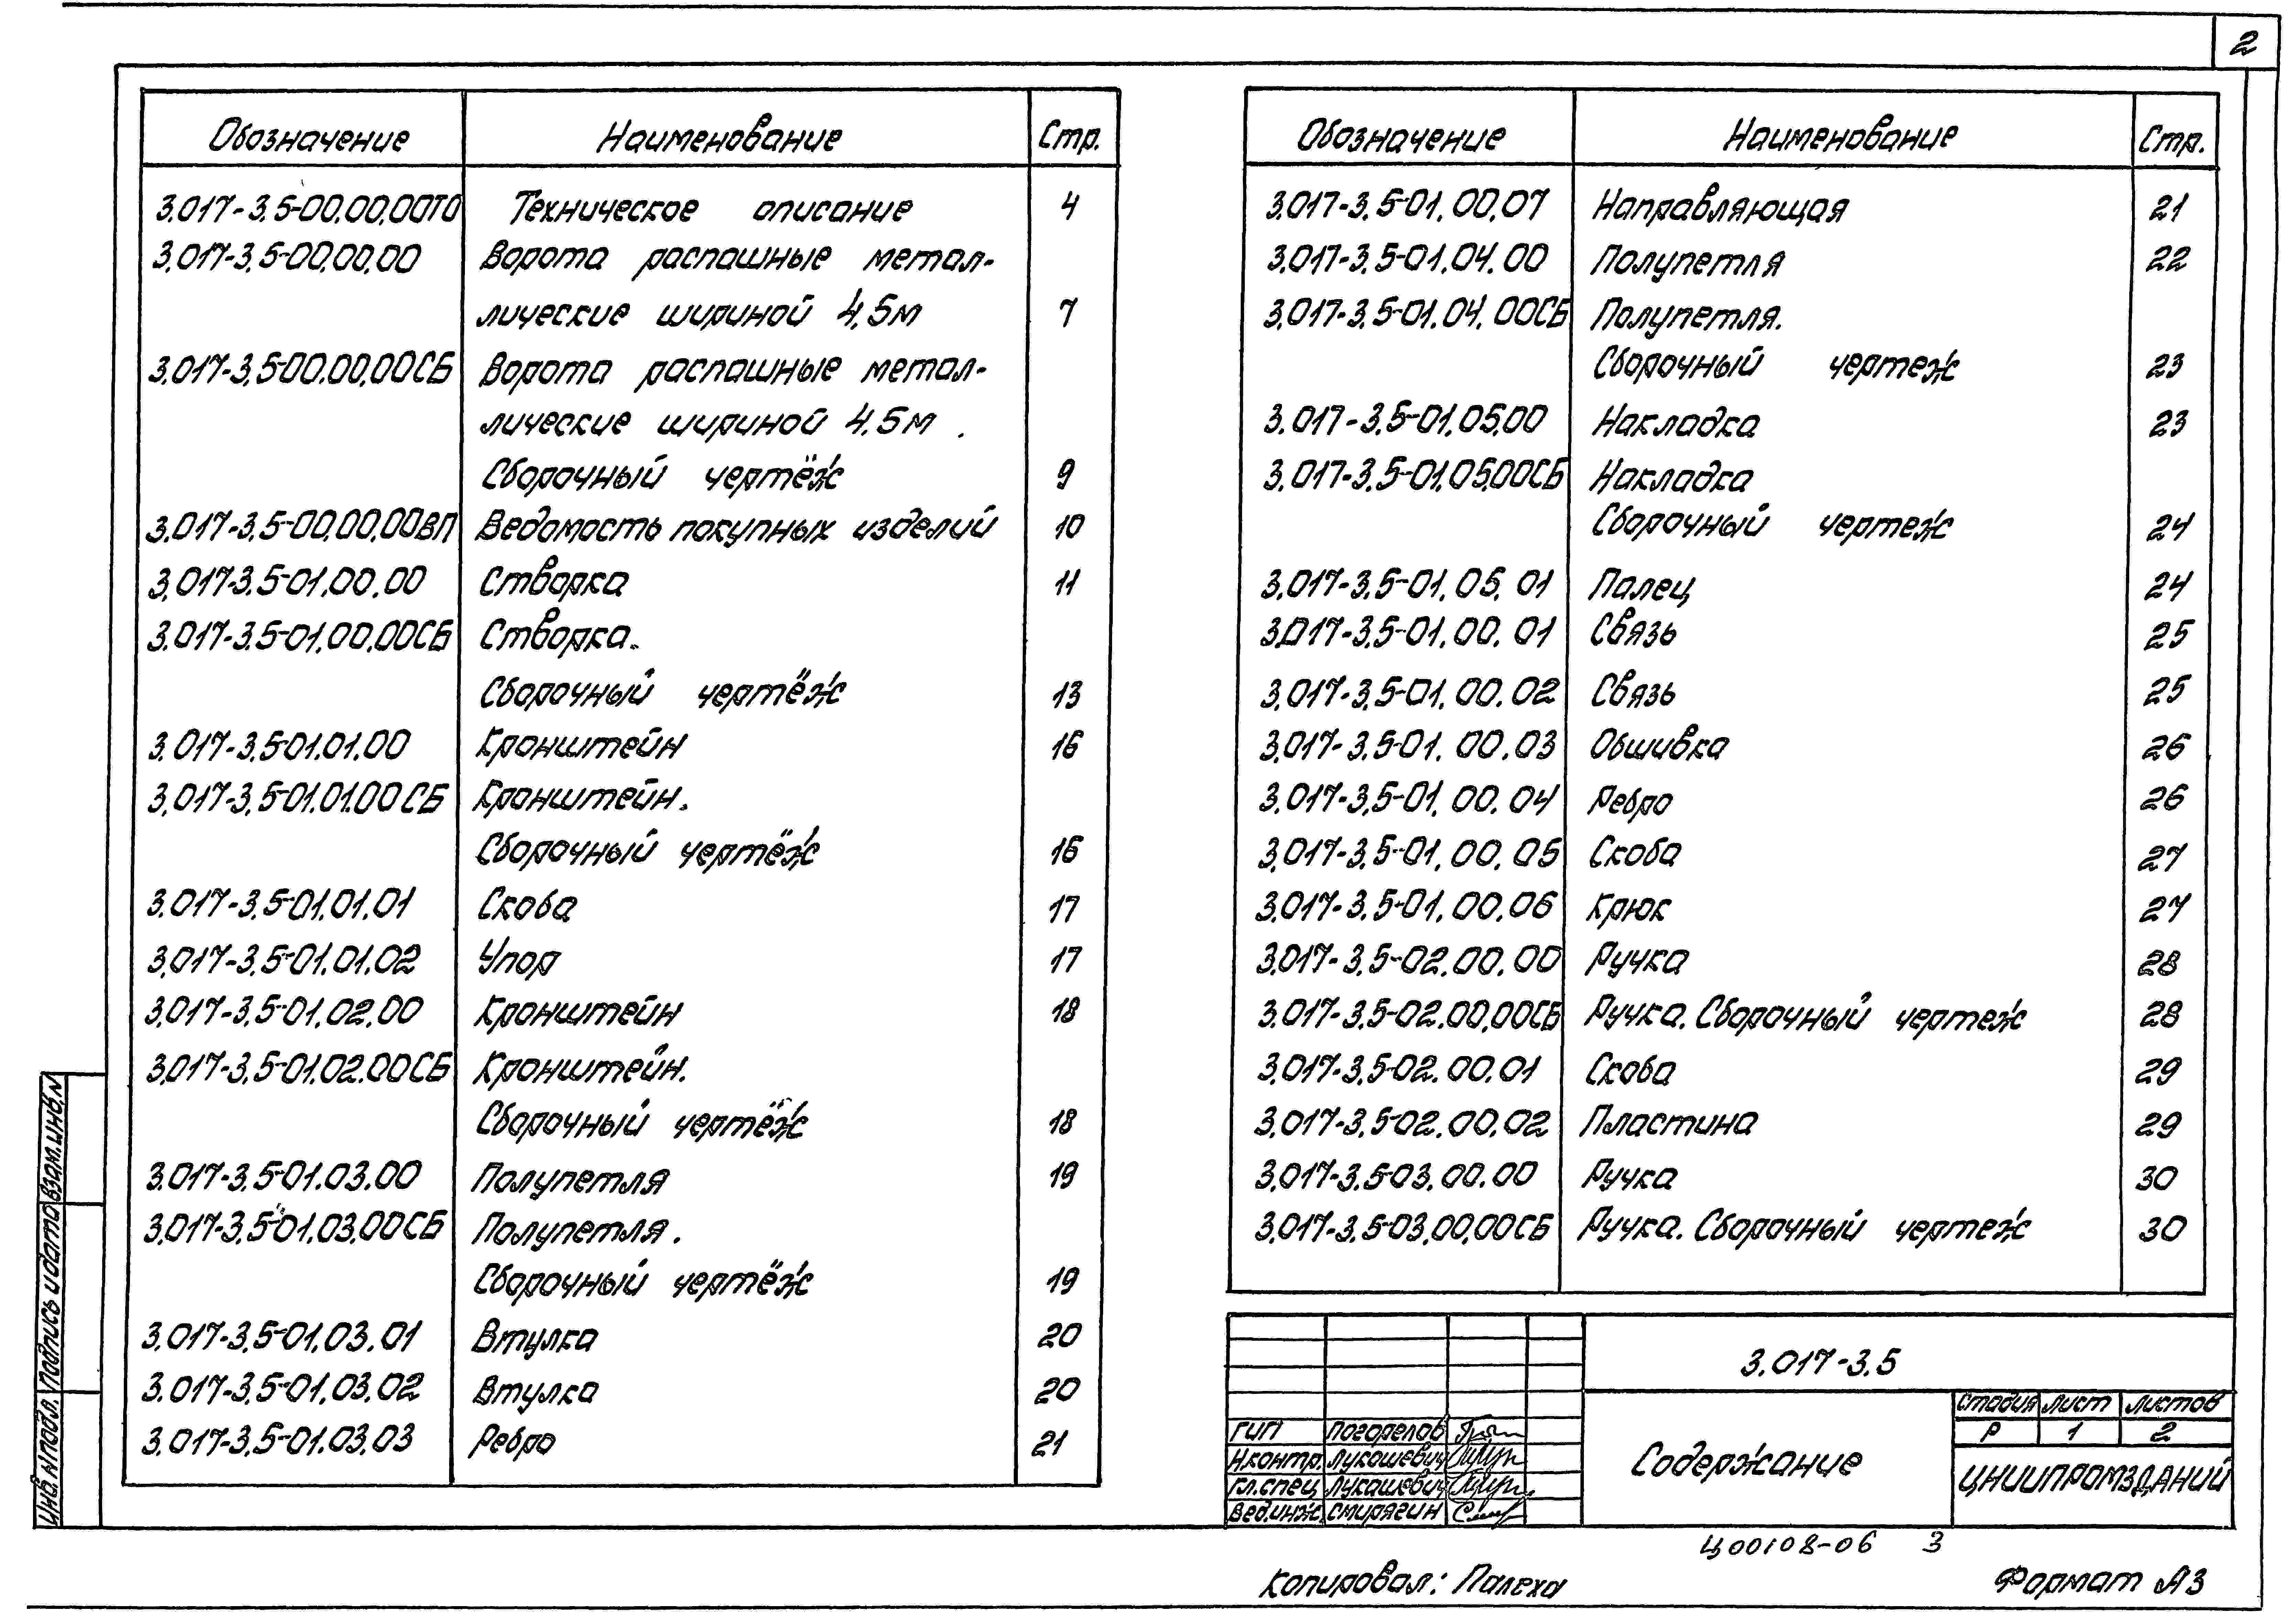 2
Обозначение Наименование Стр.
3.017-3.5-00.00.00ТО Техническое описание 4
3.017-3.5-00.00.00 Ворота распашные метал-
лические шириной 4.5м 7
3.017-3.5-00.00.00СБ Ворота распашные метал-
лические шириной 4.5м.
Сборочный чертёж 9
3.017-3.5-00.00.00ВП Ведомость покупных изделий 10
3.017-3.5-01.00.00 Створка 11
3.017-3.5-01.00.00СБ Створка.
Сборочный чертёж 13
3.017-3.5-01.01.00 Кронштейн 16
3.017-3.5-01.01.00СБ Кронштейн.
Сборочный чертёж 16
3.017-3.5-01.01.01 Скоба 17
3.017-3.5-01.01.02 Упор 17
3.017-3.5-01.02.00 Кронштейн 18
3.017-3.5-01.02.00СБ Кронштейн.
Сборочный чертёж 18
3.017-3.5-01.03.00 Полупетля 19
3.017-3.5-01.03.00СБ Полупетля.
Сборочный чертёж 19
3.017-3.5-01.03.01 Втулка 20
3.017-3.5-01.03.02 Втулка 20
3.017-3.5-01.03.03 Ребро 21
Обозначение Наименование Стр.
3.017-3.5-01.00.07 Направляющая 21
3.017-3.5-01.04.00 Полупетля 22
3.017-3.5-01.04.00СБ Полупетля.
Сборочный чертеж 23
3.017-3.5-01.05.00 Накладка 23
3.017-3.5-01.05.00СБ Накладка
Сборочный чертеж 24
3.017-3.5-01.05.01 Палец 24
3.017-3.5-01.00.01 Связь 25
3.017-3.5-01.00.02 Связь 25
3.017-3.5-01.00.03 Обшивка 26
3.017-3.5-01.00.04 Ребро 26
3.017-3.5-01.00.05 Скоба 27
3.017-3.5-01.00.06 Крюк 27
3.017-3.5-02.00.00 Ручка 28
3.017-3.5-02.00.00СБ Ручка. Сборочный чертеж 28
3.017-3.5-02.00.01 Скоба 29
3.017-3.5-02.00.02 Пластина 29
3.017-3.5-03.00.00 Ручка 30
3.017-3.5-03.00.00СБ Ручка. Сборочный чертеж 30
3.017-3.5
Содержание
Стадия Лист Листов
Р 1 2
ЦНИИПРОМЗДАНИЙ
ГИП Погорелов
Н.контр. Лукашевич
Гл.спец Лукашевич
Вед.инж Смирягин
Ц00108-06 3
Копировал: Палеха
Формат А3
Инв.№подл. Подпись и дата Взам.инв.N